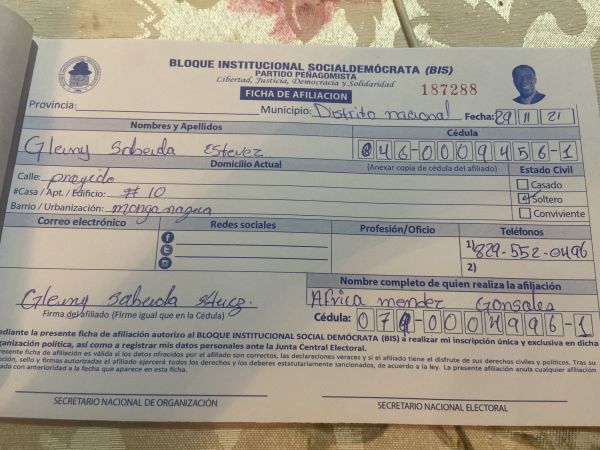 BLOQUE INSTITUCIONAL SOCIALDEMÓCRATA (BIS)
PARTIDO PEÑAGOMISTA
Libertad, Justicia, Democracia y Solidaridad
FICHA DE AFILIACION
187288
Provincia: Municipio: Distrito nacional Fecha: 29 11 21
Nombres y Apellidos Cédula
Gleny Sabeida Estevez 046-0009456-1
Domicilio Actual (Anexar copia de cédula del afiliado) Estado Civil
Calle: proyecto
Casado
#Casa / Apt. / Edificio: # 10
Soltero
Barrio / Urbanización: monganagua
Conviviente
Correo electrónico Redes sociales Profesión/Oficio Teléfonos
1) 829-552-0496
2)
Nombre completo de quien realiza la afiliación
Africa mendez Gonsales
Gleny Sabeida
Firma del afiliado (Firme igual que en la Cédula)
Cédula: 07 -0004996-1
mediante la presente ficha de afiliación autorizo al BLOQUE INSTITUCIONAL SOCIAL DEMÓCRATA (BIS) a realizar mi inscripción única y exclusiva en dicha
organización política, así como a registrar mis datos personales ante la Junta Central Electoral.
presente ficha de afiliación es válida si los datos ofrecidos por el afiliado son correctos, las declaraciones veraces y si el afiliado tiene el disfrute de sus derechos civiles y políticos. Tras su
ción, sello y firmas autorizadas el afiliado ejercerá todos los derechos y los deberes estatutariamente sancionados, de acuerdo a la ley. La presente afiliación anula cualquier afiliación
ada con anterioridad a la fecha que aparece en esta ficha.
SECRETARIO NACIONAL DE ORGANIZACIÓN
SECRETARIO NACIONAL ELECTORAL